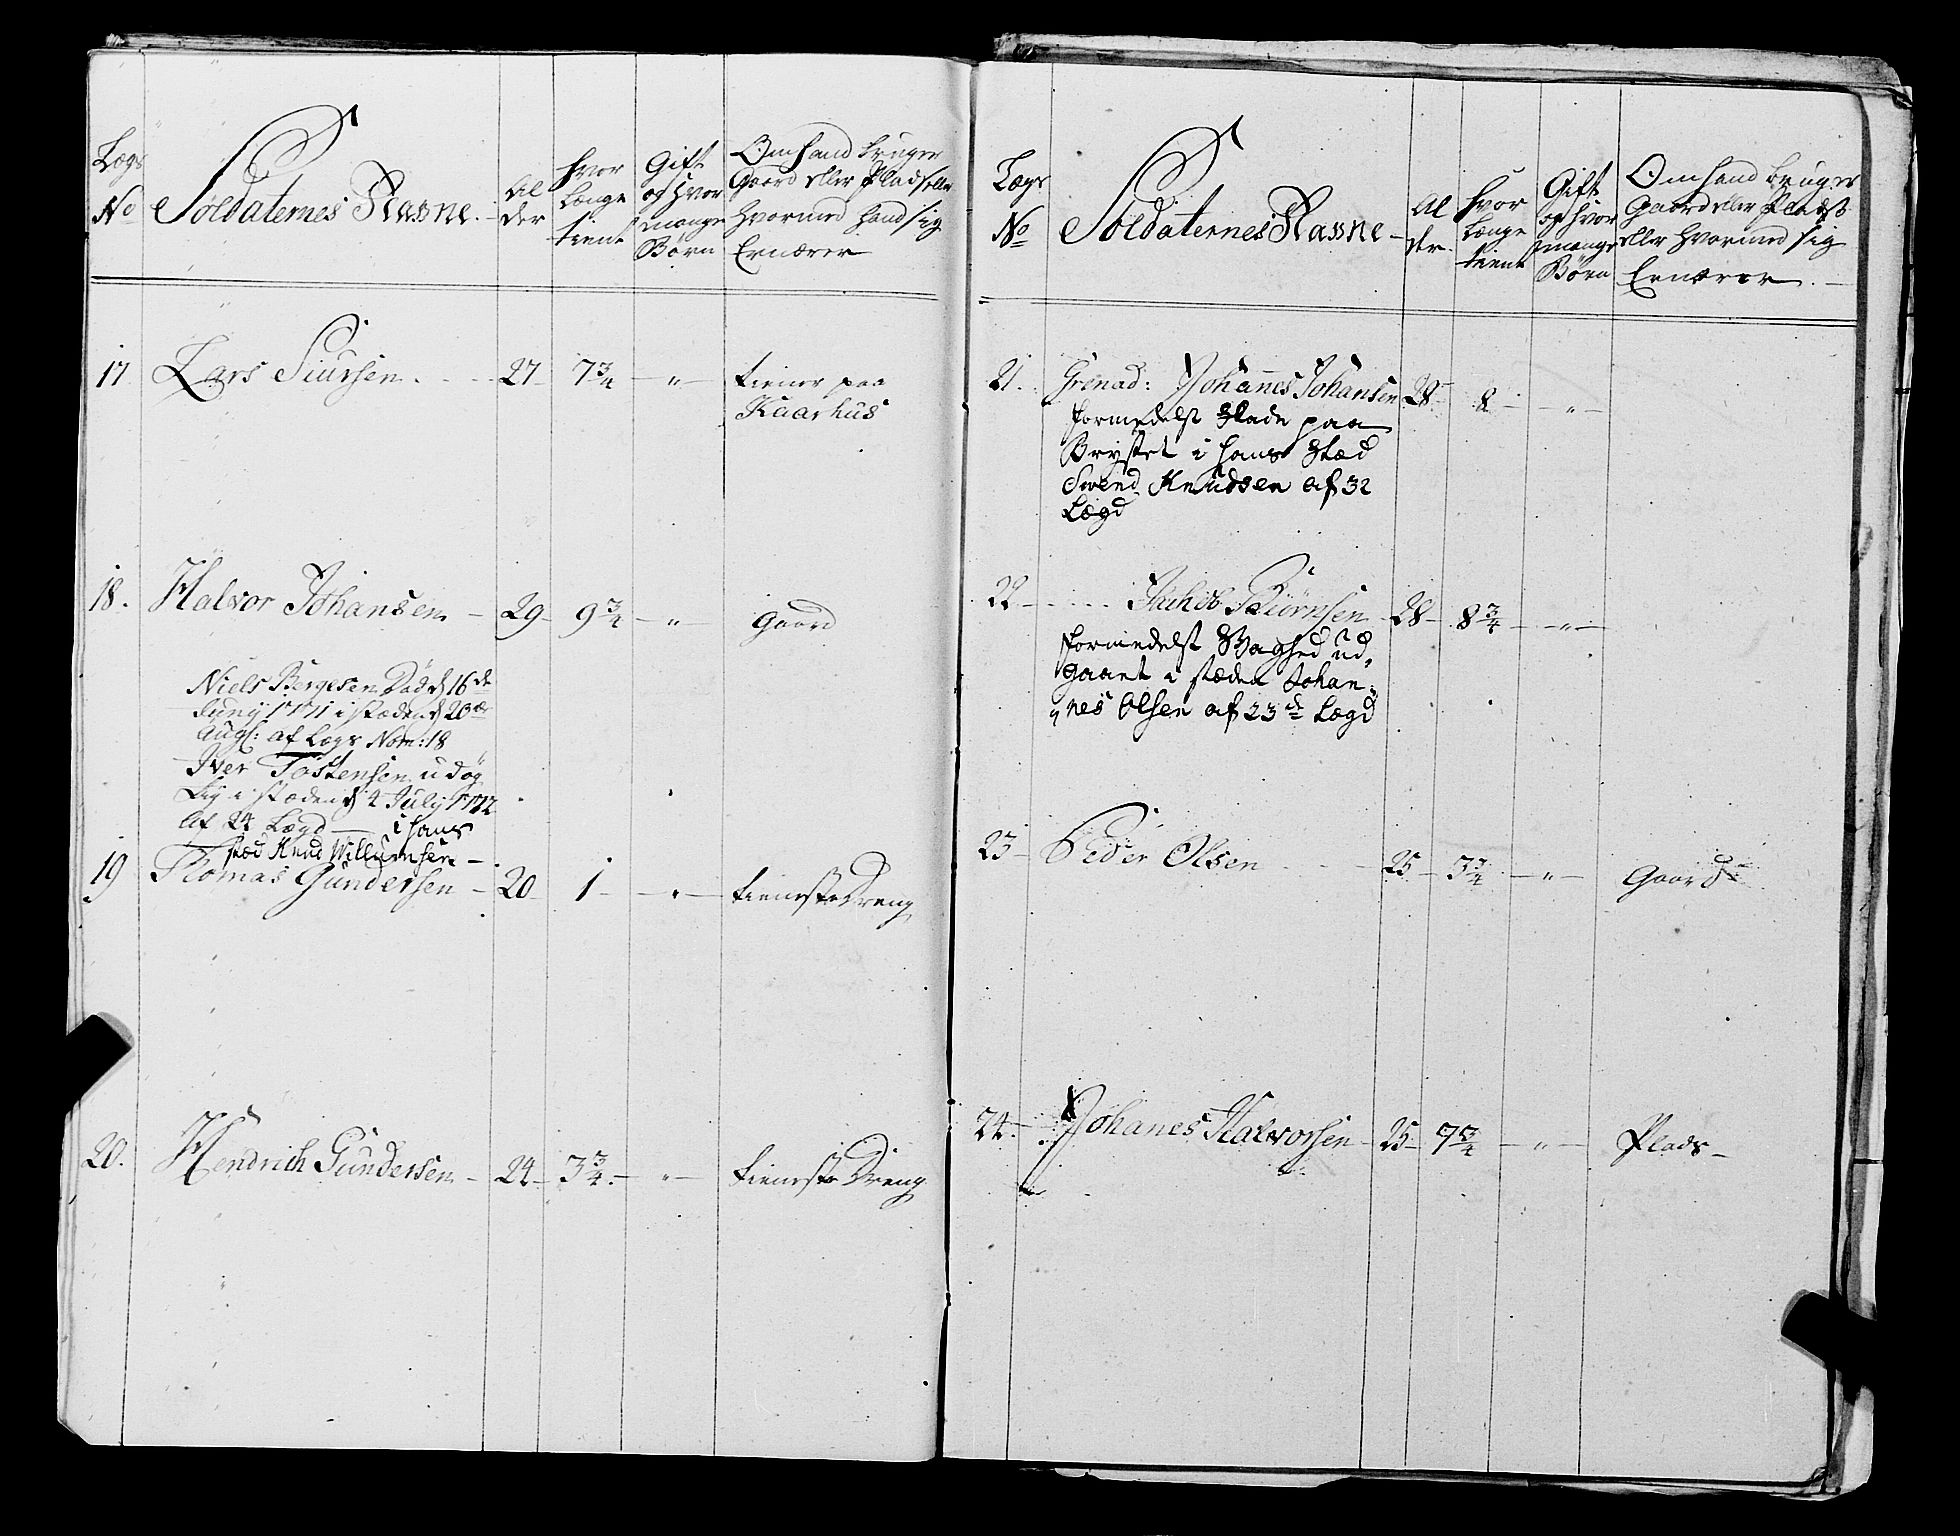 Lægs No
Soldaternes Nafne.
Al der
hvor Længe tient
Gift og hvor mange Børn
Om hand bruger Gaard eller Plads eller hvormed hand sig Ernærer
17 Lars Siursen. 27 7 3/4 " tiener paa
Kaarhus
18. Halvor Johansen 29 9 3/4 " Gaard
Niels Bergesen Død d 16de
Juny 1771 i stæden d 20de
Aug: af Lægs Nom: 18
Iver Tostensen udög
lig i stæden d 4 July 1772
Af 24 Lægd i hans
stæd Knud Willumsen
19 Thomas Gundersen 20 1 " tieneste Dreng
20. Hendrich Gundersen 24 3 3/4 " tieneste Dreng
Lægs No
Soldaternes Nafne
Al der.
hvor Længe tient
Gift og hvor mange Børn
Om hand bruger Gaard eller Plads eller hvormed sig Ernærer
21. Grenad: Johannes Johansen 28 8 "
formedelst Skade paa
Brystet i hans Stæd
Svend Knudsen af 32
Lægd
22 Jachob Biørnsen 28 8 3/4 "
formedelst Svaghed ud,
gaaet i stæden Johan=
nes Olsen af 23de Lægd
23 Peder Olsen 25 3 3/4 " Gaard
24. Johanes Halvorsen 25 7 3/4 " Plads